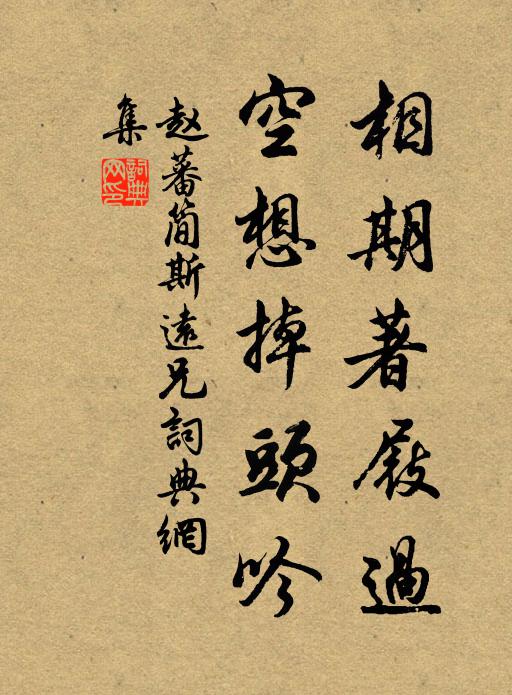 相期著屐過
空想掉頭吟
赵蕃简斯遠兄詞典網
集
詞典网印